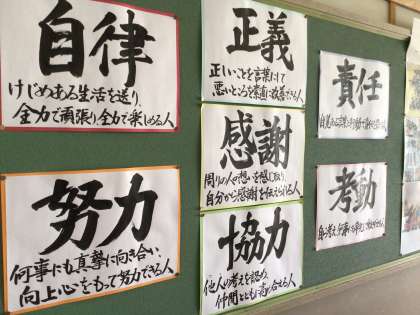 自律
けじめある生活を送り、
全力で頑張り全力で楽しめる人
努力
何事にも真摯に向き合い、
向上心をもって努力できる人
正義
正しいことを言葉にして
悪いところを素直に改善できる人
感謝
周りの人の想いを感じ取り、
自分から感謝を伝えられる人
協力
他人の考えを認め、
仲間とともに高め合える人
責任
考動